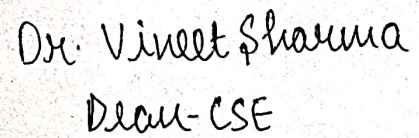 Dr. Vineet Sharma
Dean-CSE